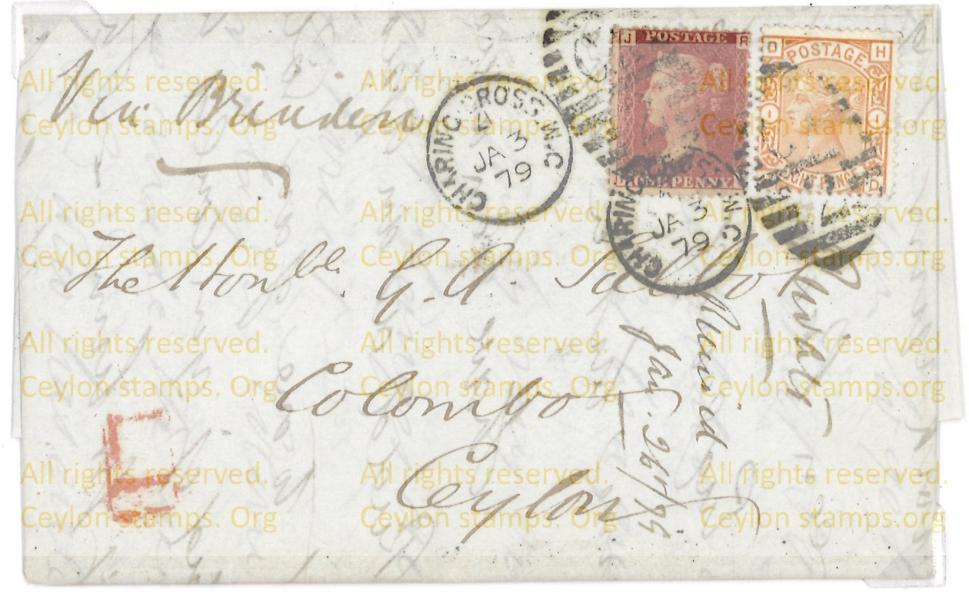 Via Brindisi
CHARING CROSS. W.C
A
JA 3
79
J R
POSTAGE
ONE PENNY
O H
POSTAGE
EIGHT PENCE
CHARING CROSS W.C
JA 3
79
The Honble G. A.
Colombo
Ceylon
Jan. 26/79
All rights reserved. All rights reserved. All rights reserved.
Ceylon stamps. Org Ceylon stamps. Org Ceylon stamps. org
All rights reserved. All rights reserved. All rights reserved.
Ceylon stamps. Org Ceylon stamps. Org Ceylon stamps. org
All rights reserved. All rights reserved. All rights reserved.
Ceylon stamps. Org Ceylon stamps. Org Ceylon stamps. org
All rights reserved. All rights reserved. All rights reserved.
Ceylon stamps. Org Ceylon stamps. Org Ceylon stamps. org